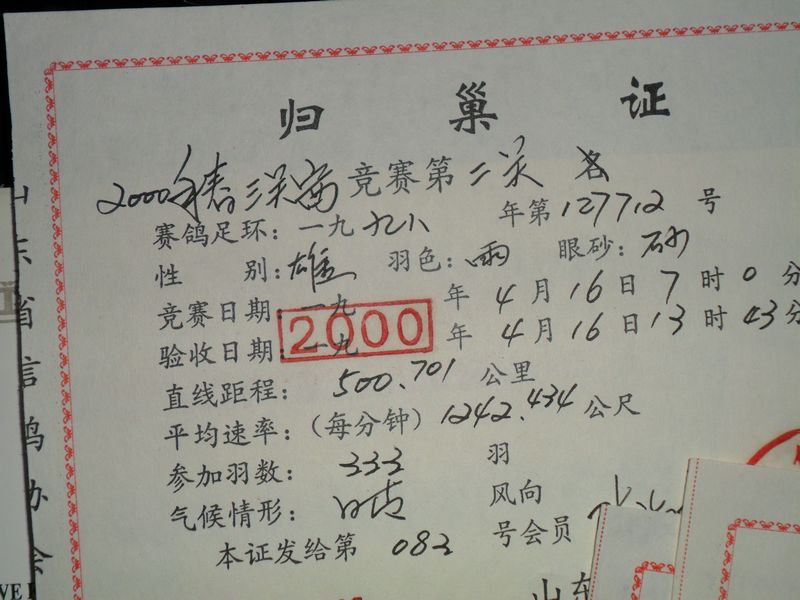 归巢证
2000年春 竞赛第 名
赛鸽足环：一九九八 年第127712号
性别：雄 羽色：雨 眼砂：砂
竞赛日期：一九 年4月16日7时0分
2000
验收日期：一九 年4月16日13时43分
直线距程：500.701公里
平均速率：（每分钟）1242.434公尺
参加羽数：333羽
气候情形：晴 风向
本证发给第083号会员
山东
山东省信鸽协会